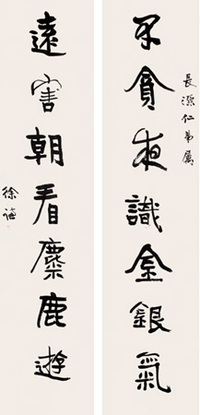 長源仁弟屬
不貪夜識金銀氣
遠害朝看麋鹿遊
徐謙